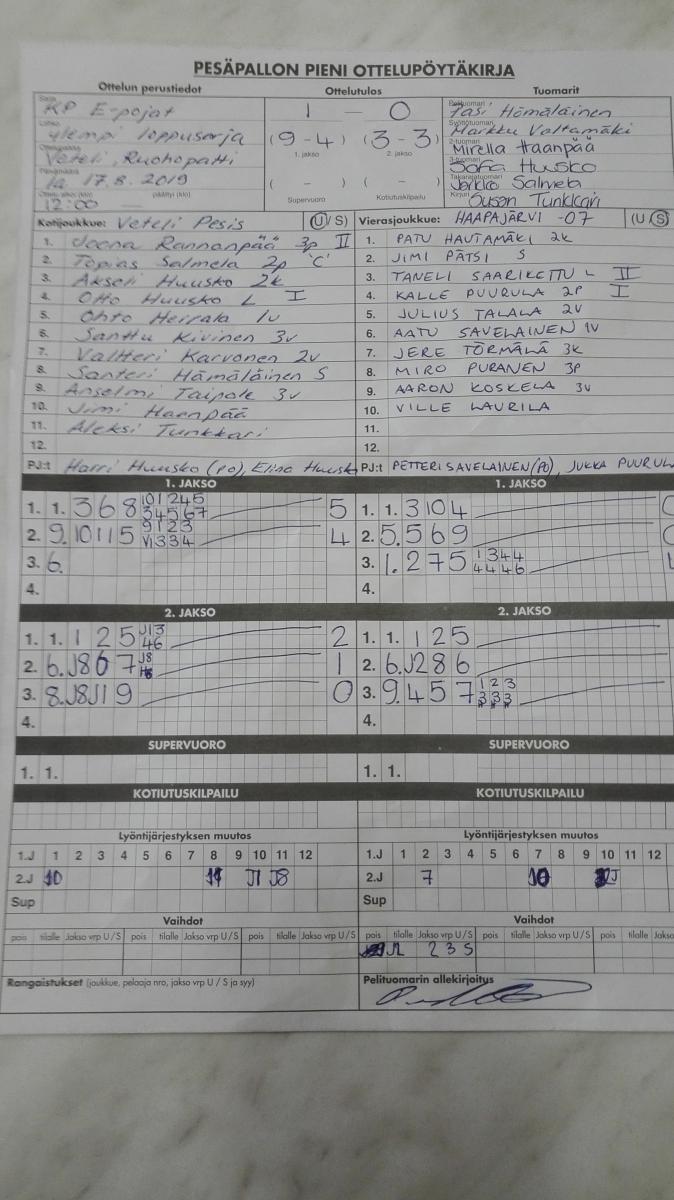 PESÄPALLON PIENI OTTELUPÖYTÄKIRJA
Ottelun perustiedot Ottelutulos Tuomarit
Sarja KP E-pojat
ylempi loppusarja
Veteli, Ruohopatti
la 17.8.2019
12:00
1 — 0
(9 - 4) (3 - 3)
1. jakso 2. jakso
( - ) ( - )
Supervuoro Kotiutuskilpailu
Pelituomari Hämäläinen
Syöttötuomari Markku Valtamäki
2-tuomari Mirella Haanpää
3-tuomari Sofia Huusko
Takarajatuomari Jarkko Salmela
Kirjuri Susan Tunkkari
Kotijoukkue: Veteli Pesis (U/S)
1. Joona Rannanpää 3p II
2. Topias Salmela 2p 'C'
3. Akseli Huusko 2k
4. Otto Huusko L I
5. Ohto Herrala 1v
6. Santtu Kivinen 3v
7. Valtteri Karvonen 2v
8. Santeri Hämäläinen S
9. Anselmi Taipale 3v
10. Jimi Haanpää
11. Aleksi Tunkkari
12.
PJ:t Harri Huusko (po), Elina Huusk
Vierasjoukkue: HAAPAJÄRVI -07 (U S)
1. PATU HAUTAMÄKI 2k
2. JIMI PÄTSI S
3. TANELI SAARIKETTU L II
4. KALLE PUURULA 2P I
5. JULIUS TALALA 2V
6. AATU SAVELAINEN 1V
7. JERE TÖRMÄLÄ 3k
8. MIRO PURANEN 3P
9. AARON KOSKELA 3V
10. VILLE LAURILA
11.
12.
PJ:t PETTERI SAVELAINEN (PO), JUKKA PUURUL
1. JAKSO
1. 1. 3 6 8 10 1 2 4 5 5
3 4 5 6 7
2. 9. 10 11 5 9 1 2 3 4
V1 3 3 4
3. 6.
4.
1. JAKSO
1. 1. 3 10 4
2. 5. 5 6 9
3. 1. 2 7 5 1 3 4 4
4 4 4 6
4.
2. JAKSO
1. 1. 1 2 5 J1 3 2
4 6
2. 6. J8 6 7 J8 1
3. 8. J8 J1 9 0
4.
2. JAKSO
1. 1. 1 2 5
2. 6. J2 8 6
3. 9. 4 5 7 1 2 3
3 3 3
4.
SUPERVUORO SUPERVUORO
1. 1. 1. 1.
KOTIUTUSKILPAILU KOTIUTUSKILPAILU
Lyöntijärjestyksen muutos Lyöntijärjestyksen muutos
1.J 1 2 3 4 5 6 7 8 9 10 11 12 1.J 1 2 3 4 5 6 7 8 9 10 11 12
2.J 10 J1 J8 2.J 7 10
Sup Sup
Vaihdot Vaihdot
pois tilalle Jakso vrp U/S pois tilalle Jakso vrp U/S pois tilalle Jakso vrp U/S pois tilalle Jakso vrp U/S pois tilalle Jakso vrp U/S pois tilalle Jakso
J2 2 3 S
Rangaistukset (joukkue, pelaaja nro, jakso vrp U / S ja syy) Pelituomarin allekirjoitys